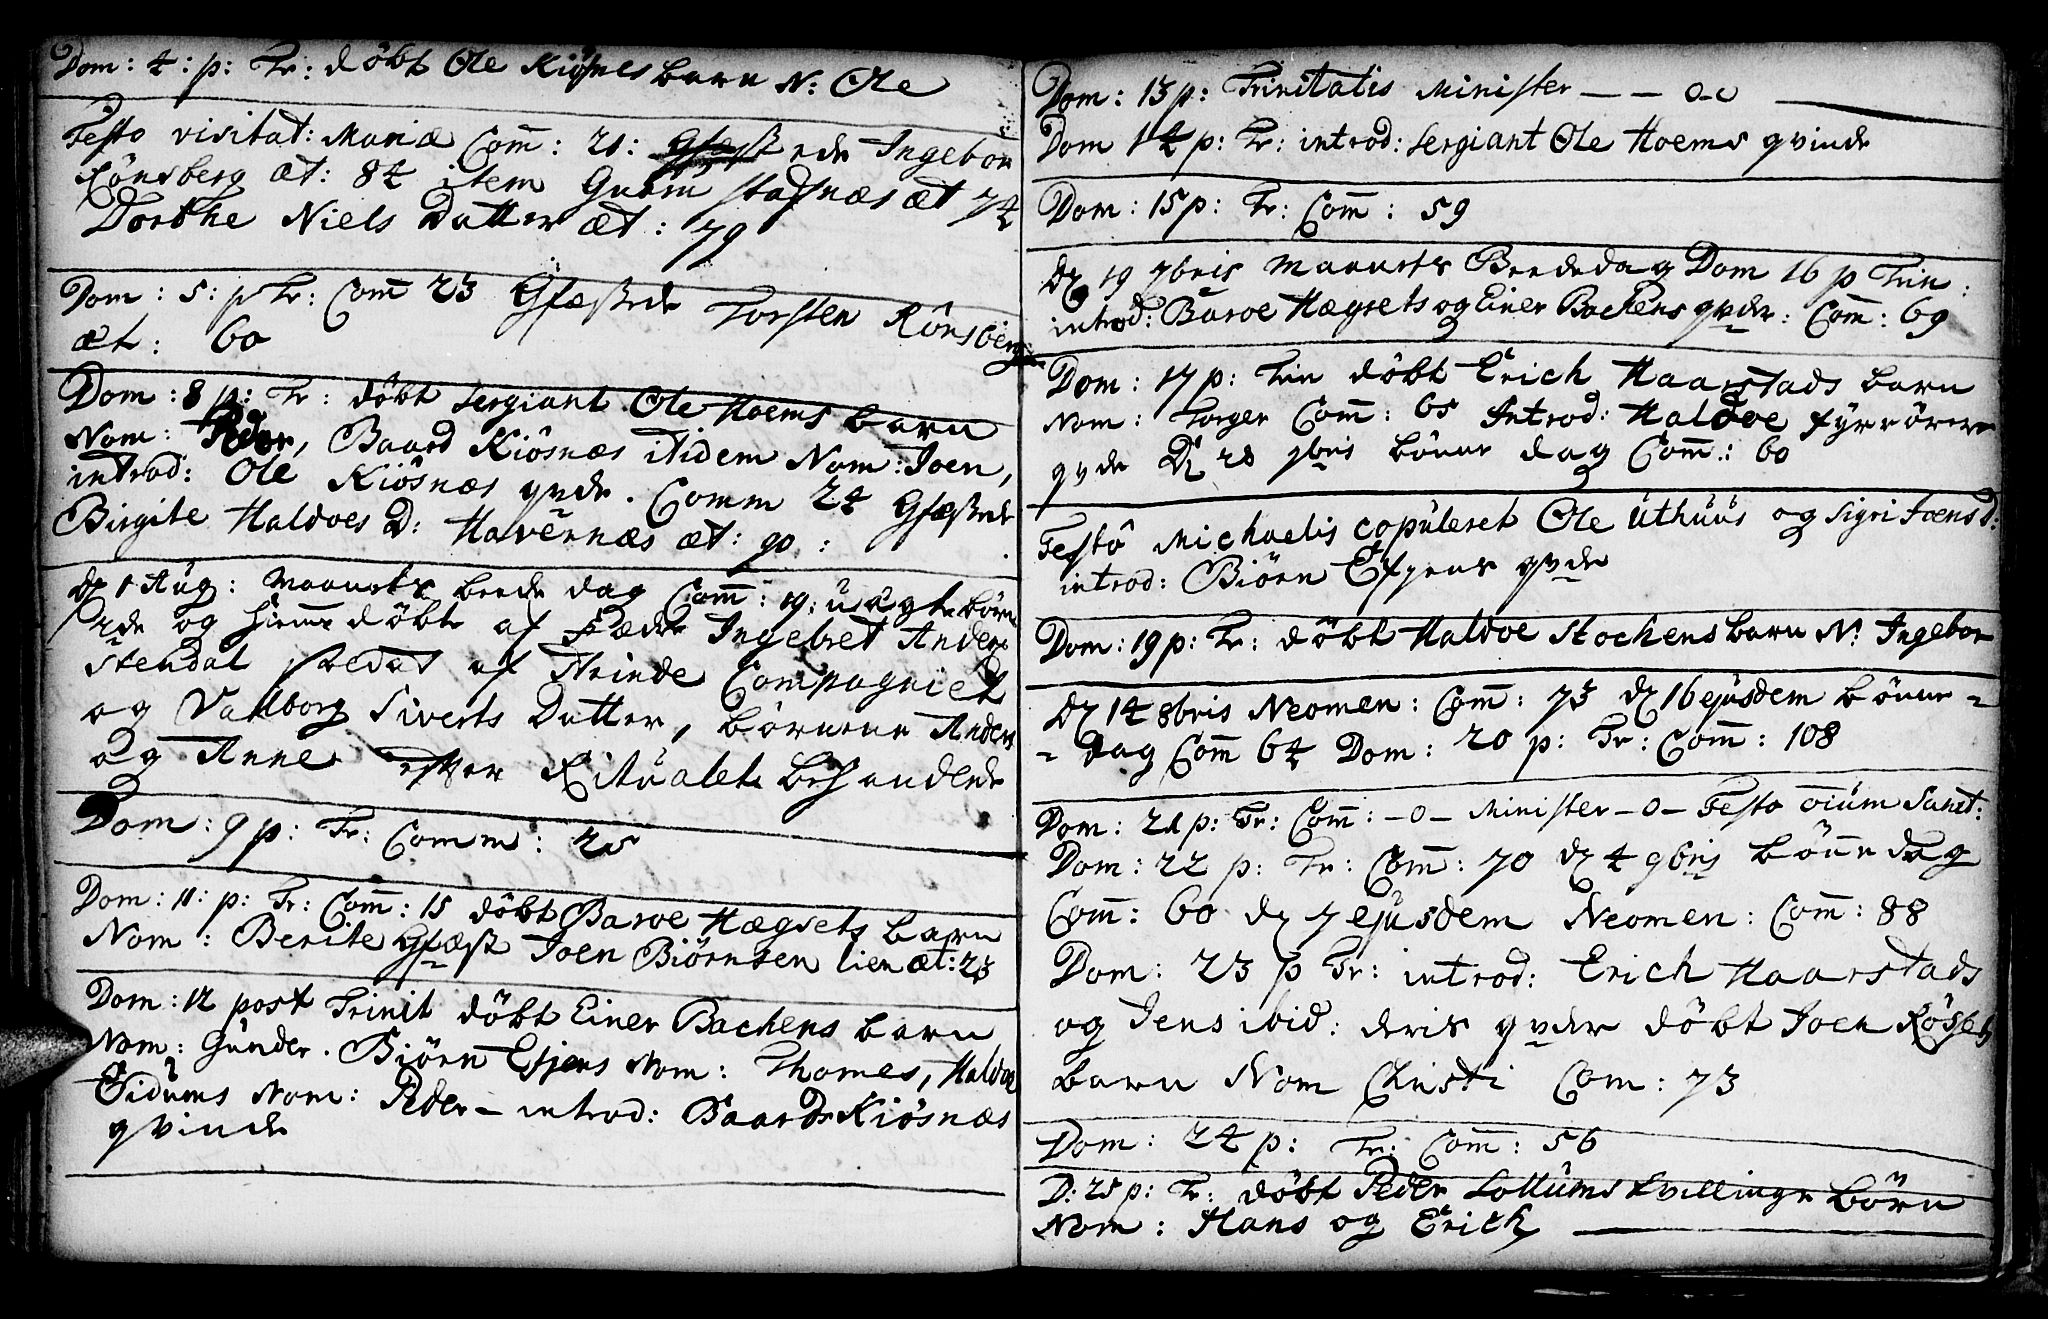 Dom: 4: p: Tr: döbt Ole Kiösnes barn N: Ole
Festo visitat: Mariæ Com̄: 21: Gfæst ede Ingebor
Rönsberg æt: 84 item Guru Stafsnæs æt 74
Dorthe Niels Datter æt: 79
Dom: 5: p Tr: Com̄ 23 Gfæstede Torsten Rönsberg
æt: 60
Dom: 8 p: Tr: döbt Sergiant Ole Hoems barn
Nom: Peder, Baard Kiösnæs itidem Nom: Joen,
introd: Ole Kiösnæs qvde. Comm 24 Gfæstede
Birgite Haldoes D: Havernæs æt: 90:
Dr 1 Aug: Maanets beede dag Com̄: 19: uægte börn
ude og hiemme döbte af Fædde Ingebret Anders
Stendal soldat af Strinde Compagniet
og Valborg Siverts Datter, börnene Anders
og Anne efter Ritualet behandlede
Dom: 9 p: Tr: Comm: 25
Dom: 11: p: Tr: Com̄: 15 döbt Baroe Hægsets barn
Nom: Berite Gfæst Joen Biörnsen lien æt: 23
Dom: 12 post Trinit döbt Einer Bachens barn
Nom: Gunder. Biörn Esjens Nom: Thomes, Haldoe
Eidums Nom: Peder – introd: Baards Kiösnæs
qvinde
Dom: 13 p: Trinitatis Minister – – o-o
Dom 14 p: Tr: introd: Sergiant Ole Hoems qvinde
Dom: 15 p: Tr: Com̄: 59
Dr 19 7bris Maanets Beededag Dom 16 p Trin:
introd: Baroe Hægsets og Einer Bachens qvder: Com̄: 69
Dom: 17 p: Trin döbt Erich Haarstads barn
Nom: Torger Com̄: 65 Introd: Haldoe fyrrörers
qvde Dr 28 7bris bönne dag Com̄: 60
Festo Michaelis copuleret Ole Uthuus og Sigri Joens D:
introd: Biörn Esjens qvde
Dom: 19 p: Tr: döbt Haldoe Stochens barn N: Ingebor
Dr 14 8bris Neomen: Com̄: 73 dr 16 ejusdem bönne-
- dag Com̄ 64 Dom: 20 p: Tr: Com̄: 108
Dom: 21 p: Tr: Com̄: -o- Minister -o- Festo oium Sanct:
Dom: 22 p: Tr: Com̄: 70 dr 4 9bris bönne dag
Com̄: 60 dr 7 ejusdem Neomen: Com̄: 88
Dom: 23 p Tr: introd: Erich Haarstads
og Jens ibid: deris qvder döbt Joen Rösets
barn Nom Christi Com: 73
Dom: 24 p: Tr: Com̄: 56
D: 25 p: Tr: döbt Peder Lollums tvillinge börn
Nom: Hans og Erich